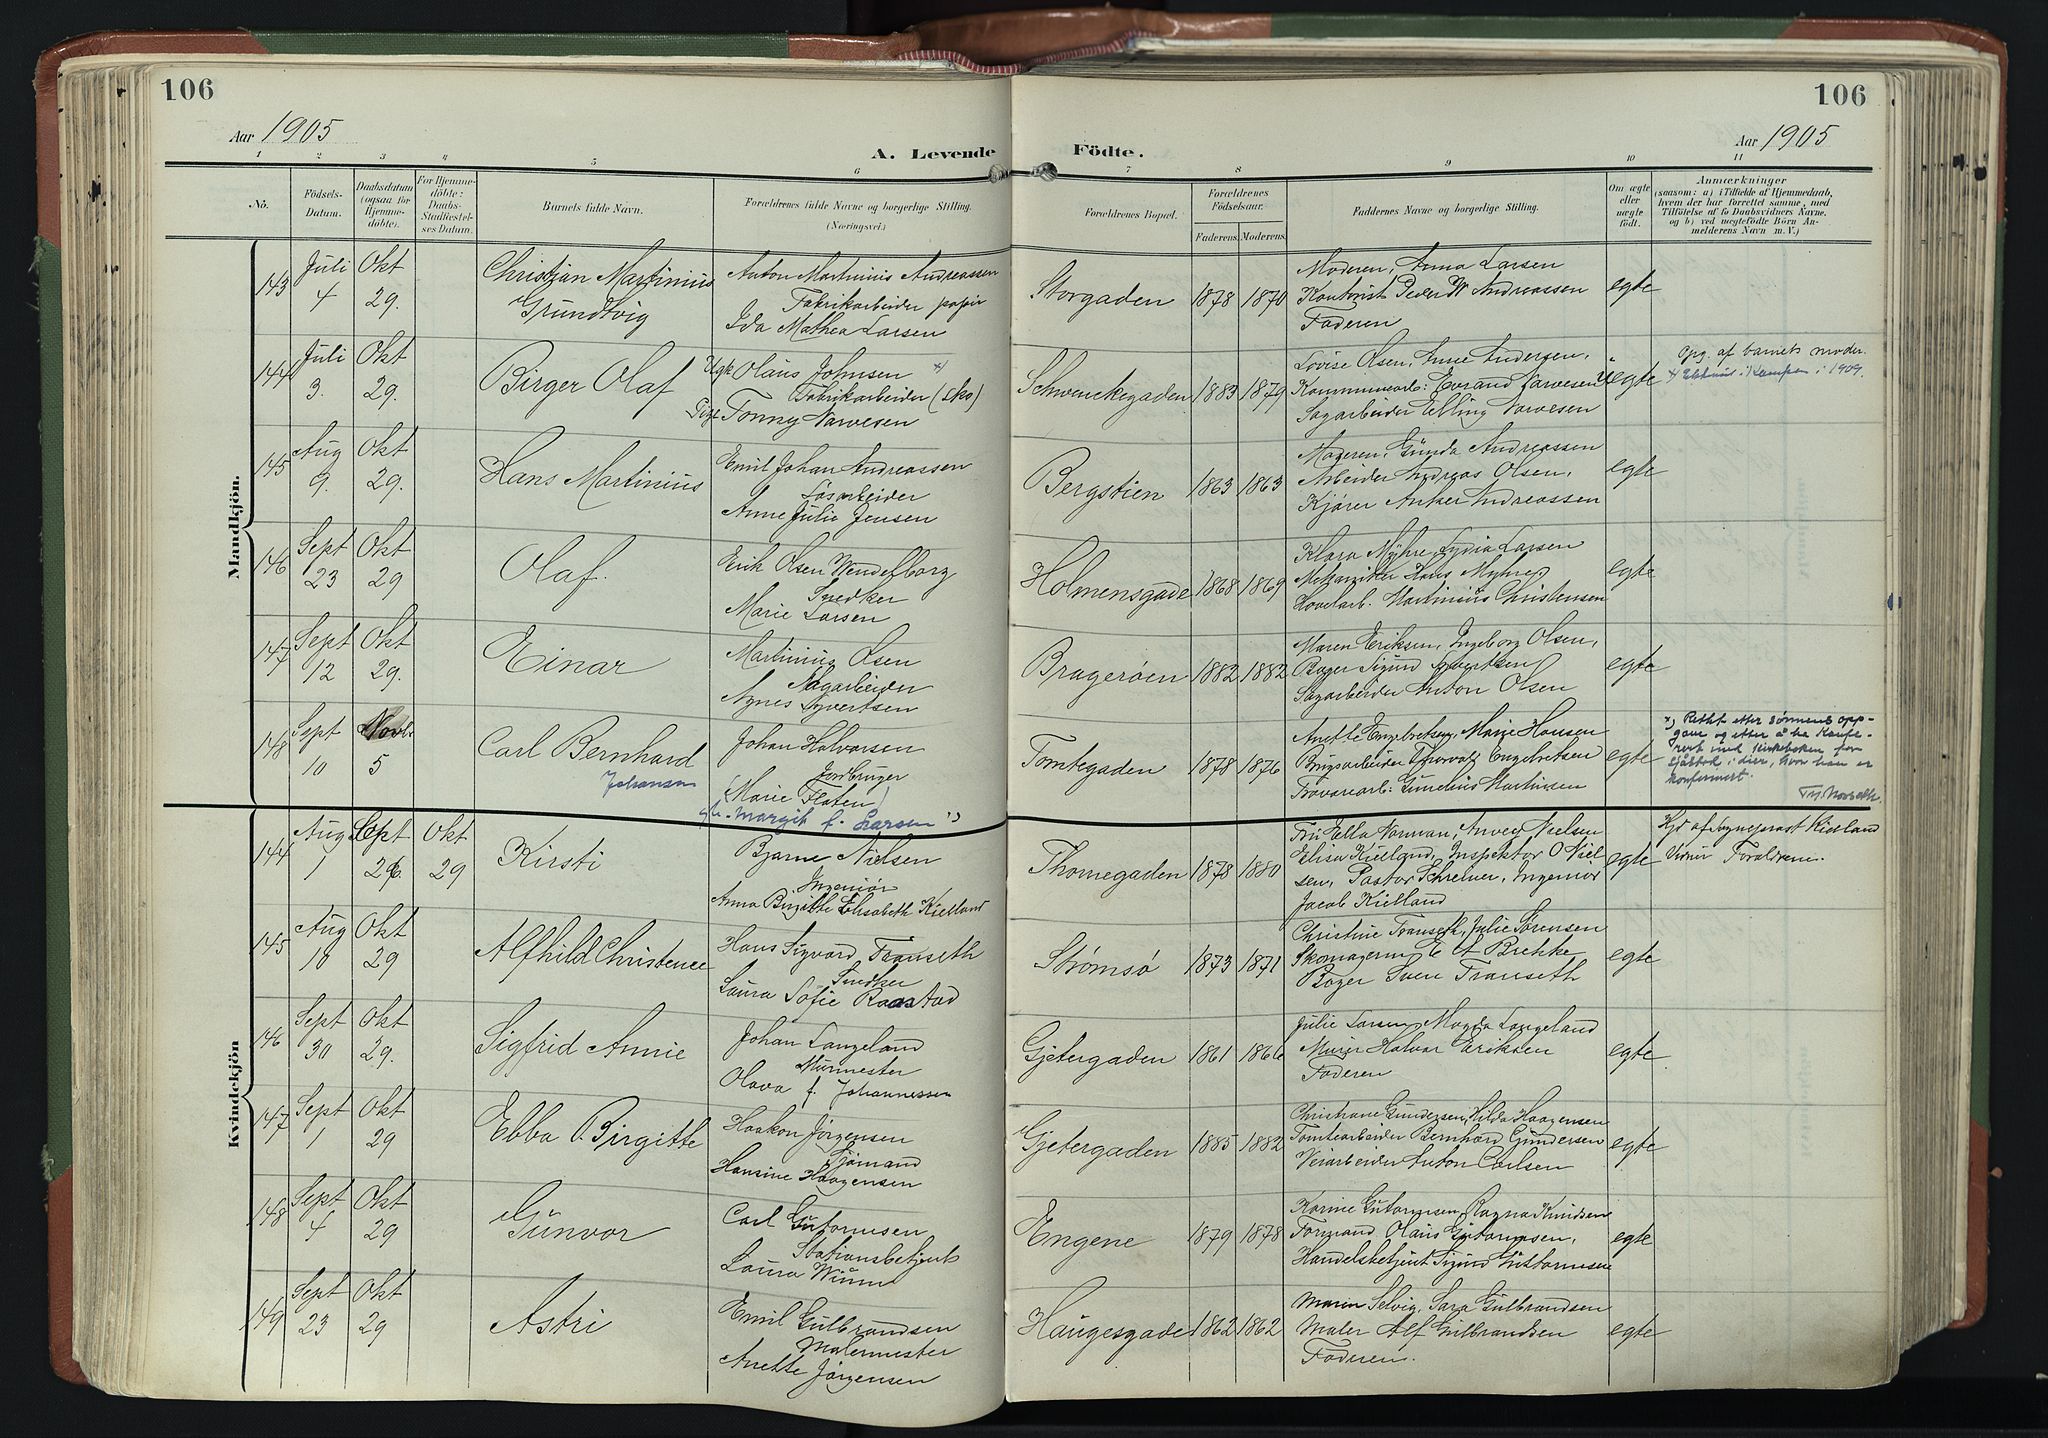 106
106
Aar 1905
Aar 1905
A. Levende
Födte.
1 2 3 4 5 6 7 8 9 10 11
No.
Födsels-
Datum.
Daabsdatum
(ogsaa for
Hjemme-
döbte).
For Hjemme-
döbte:
Daabs-
Stadfæstel-
ses Datum.
Barnets fulde Navn.
Forældrenes fulde Navne og borgerlige Stilling.
(Næringsvei.)
Forældrenes Bopæl.
Forældrenes
Födselsaar.
Faderens. Moderens.
Faddernes Navne og borgerlige Stilling.
Om ægte
eller
uægte
födt.
Anmærkninger
(saasom: a) i Tilfælde af Hjemmedaab,
hvem der har forrettet samme, med
Tilföielse af to Daabsvidners Navne,
og b) ved uægtefödte Börn An-
melderens Navn m. V.)
Mandkjön.
143 Juli 4 Okt 29. Christian Martinius
Grundtvig
Anton Martinius Andreassen
Fabrikarbeider papir
Ida Mathea Larsen
Storgaden 1878 1870
Moderen, Anna Larsen
Kontorist Peder M Andreassen
Faderen
egte
144 Juli 3. Okt 29. Birger Olaf
Ugk Olaus Johnsen x)
Fabrikarbeider (sko)
Pige Tonny Narvesen
Schwenckegaden 1883 1879
Lovise Olsen, Anne Andersen,
Kommunearb: Evrand Narvesen
Sagarbeider Elling Narvesen
Uegte
Opg. af barnets moder.
x) i Kampen i 1909.
145 Aug 9. Okt 29. Hans Martinius
Emil Johan Andreassen
Løsarbeider
Anne Julie Jensen
Bergstien 1863 1863
Moderen, Gunda Andreassen
Arbeider Andreas Olsen,
Kjører Anker Andreassen
egte
146 Sept 23 Okt 29 Olaf.
Erik Olsen Wendelborg
Snedker
Marie Larsen
Holmensgade 1868 1869
Klara Myhre, Lydia Larsen
Mekaniker Hans Myhre
Høvelarb. Martinius Christensen
egte
147 Sept 12 Okt 29. Einar
Martinius Olsen
Sagarbeider
Agnes Syvertsen
Bragerøen 1882 1882
Maren Eriksen, Ingeborg Olsen,
Bager Sigurd Syvertsen
Sagarbeider Anton Olsen
egte
148 Sept 10 Novb. 5 Carl Bernhard
Johansen
Johan Halvorsen
Jordbruger
(Marie Flaten)
Margit f. Larsen x)
Tomtegaden 1878 1876
Anette Engebretsen, Marie Hansen
Brugsarbeider Thorvald Engebretsen
Travarearb: Gunelius Martinsen
egte
x) Rettet etter sønnens opp-
gave og etter å ha konfe-
rert med kirkeboken for
Sjåstad i Lier, hvor han er
konfirmert.
Kvindekjön
144 Aug 1 Sept 26. Okt 29 Kirsti
Bjarne Nielsen
Ingeniør
Anna Birgitte Elisabeth Kielland
Thomegaden 1878 1880
Fru Ella Norman, Anveg Nielsen
Elisa Kielland, Inspektør O Niel-
sen, Pastor Schreiner, Ingeniør
Jacob Kielland
egte
Hjd af Sogneprest Kielland
Vidner Foreldrene.
145 Aug 18 Okt 29 Alfhild Christence
Hans Sigvard Transeth
Snedker
Laura Sofie Raastad
Strømsø 1873 1871
Christine Transeth, Julie Sørensen
Skomagerm E A Brekke
Bager Sven Transeth
egte
146 Sept 30 Okt 29. Sigfrid Annie
Johan Langeland
Murmester
Olava f. Johannessen
Gjetergaden 1861 1866
Julie Larsen, Magda Langeland
Murer Halvor Eriksen
Faderen
egte
147 Sept 1 Okt 29 Ebba Birgitte
Haakon Jørgensen
Sjømand
Hansine Haagensen
Gjetergaden 1885 1882
Christiane Gundersen, Hilda Haagensen
Tomtearbeider Bernhard Gundersen
Veiarbeider Anton Carlsen
egte
148 Sept 4 Okt 29 Gunvor
Carl Guttormsen
Stationsbetjent
Laura Wium
Engene 1879 1878
Karine Guttormsen, Ragna Knudsen
Formand Olaus Guttormsen,
Handelsbetjent Sigurd Guttormsen
egte
149 Sept 23 Okt 29 Astri
Emil Gulbrandsen
Malermester
Anette Jørgensen
Haugesgade 1862 1862
Maren Selvig, Sara Gulbrandsen
Maler Alf Gulbrandsen
Faderen.
egte